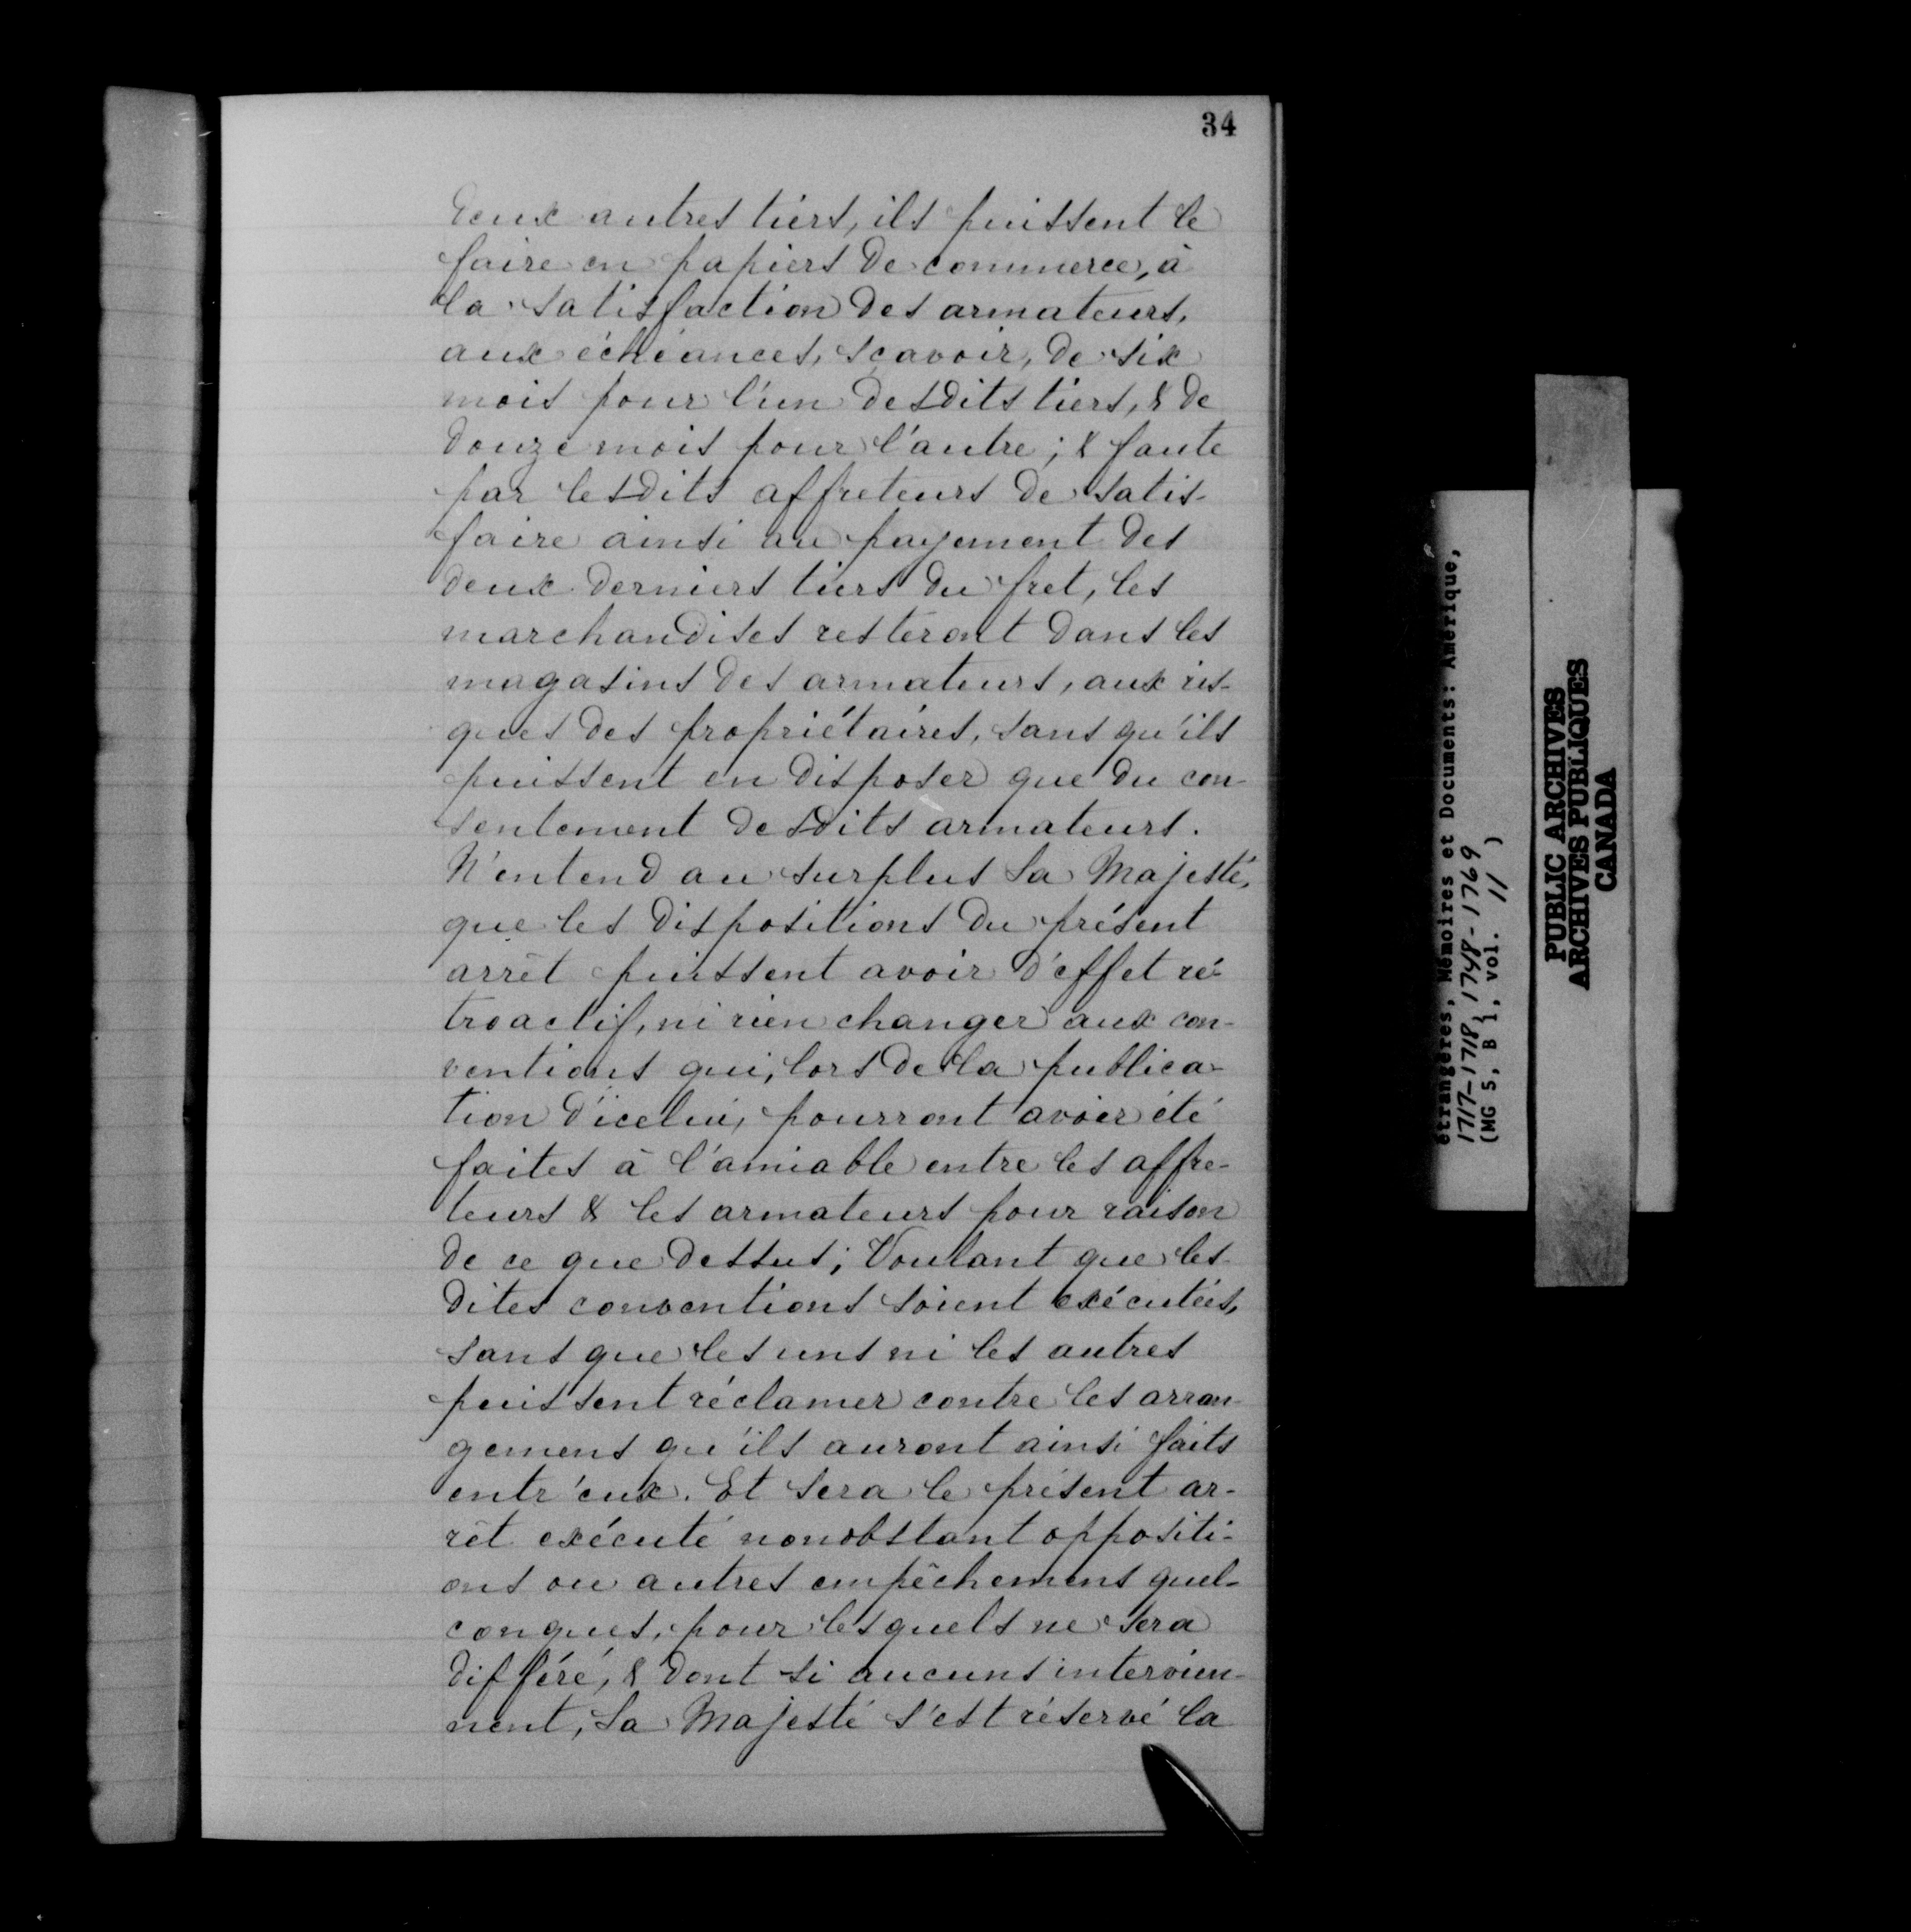 34
deux autres tiers, ils puissent le
faire en papiers de commerce, à
la satisfaction des armateurs,
aux échéances, sçavoir, de six
mois pour l'un desdits tiers, & de
douze mois pour l'autre; & faute
par lesdits affreteurs de satis-
faire ainsi au payement des
deux derniers tiers du fret, les
marchandises resteront dans les
magasins des armateurs, aux ris-
ques des propriétaires, sans qu'ils
puissent en disposer que du con-
sentement desdits armateurs.
N'entend au surplus Sa Majesté,
que les dispositions du présent
arrêt puissent avoir d'effet ré-
troactif, ni rien changer aux con-
ventions qui, lors de la publica-
tion d'icelui, pourront avoir été
faites à l'amiable entre les affre-
teurs & les armateurs pour raison
de ce que dessus; Voulant que les-
dites conventions soient exécutées,
sans que les uns ni les autres
puissent réclamer contre les arran-
gemens qu'ils auront ainsi faits
entr'eux. Et sera le présent ar-
rêt exécuté nonobstant oppositi-
ons ou autres empêchemens quel-
conques, pour lesquels ne sera
différé, & dont si aucuns intervien-
nent, Sa Majesté s'est réservé la
étrangères, Mémoires et Documents: Amérique,
1717-1718, 1748-1769
(MG 5, B 1, vol. 11 )
PUBLIC ARCHIVES
ARCHIVES PUBLIQUES
CANADA